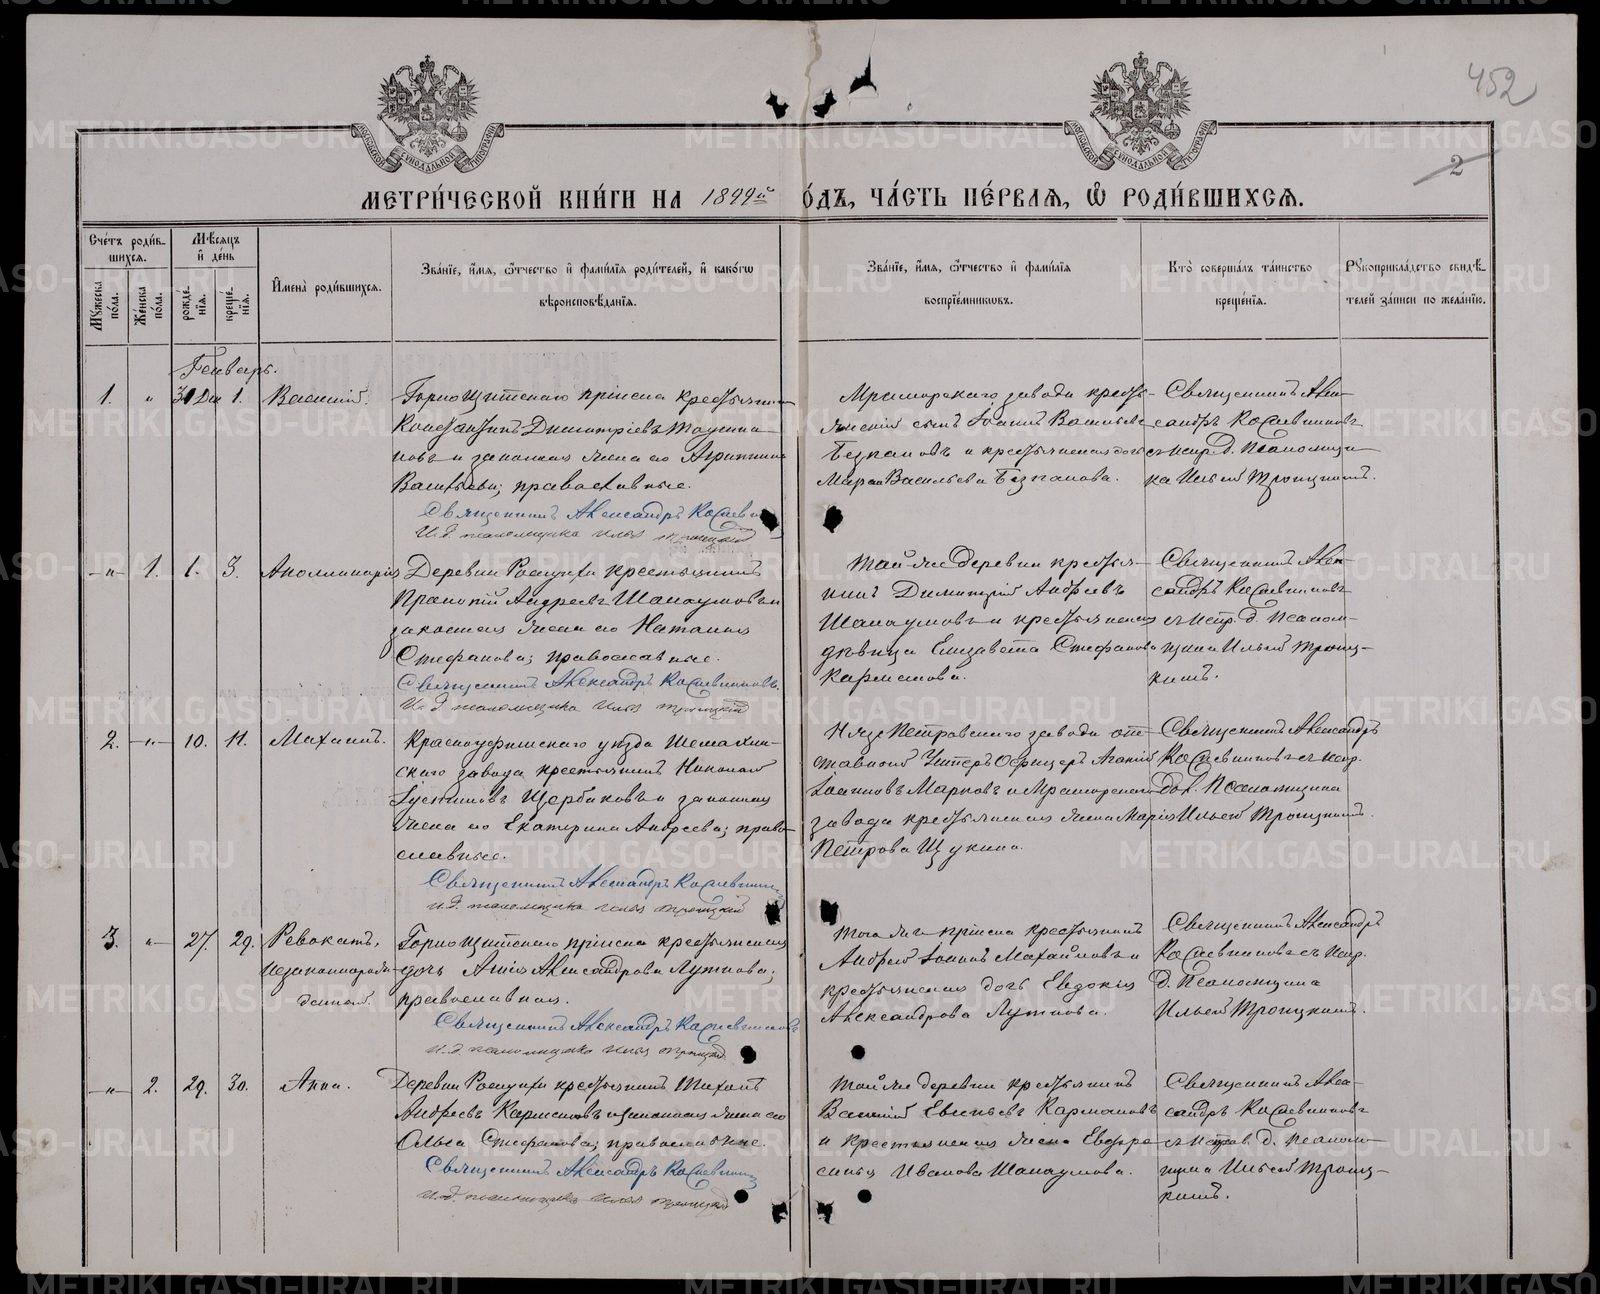 452
2
МОСКОВСКОЙ СѴНОДАЛЬНОЙ ТИПОГРАФІИ
МОСКОВСКОЙ СѴНОДАЛЬНОЙ ТИПОГРАФІИ
МЕТРИ́ЧЕСКОЙ КНИ́ГИ НА 1899й
ÓДЪ, ЧА́СТЬ ПЕ́РВАѦ, Ѡ҆ РОДИ́ВШИХСѦ.
Сче́тъ роди́в-
шихсѧ.
Мꙋ́жеска по́ла.
Же́нска по́ла.
Мѣ́сѧцъ
и҆ де́нь
рожде́-
нїѧ.
креще́-
нїѧ.
И҆мена̀ роди́вшихсѧ.
Зва́нїе, и҆́мѧ, ѻ҆́тчество и҆ фами́лїѧ роди́телей, и҆ како́гѡ
вѣроисповѣ́данїѧ.
Зва́нїе, и҆́мѧ, ѻ҆́тчество и҆ фами́лїѧ
воспрїе́мникѡвъ.
Кто̀ соверша́лъ та́инство
креще́нїѧ.
Рꙋкоприкла́дство свидѣ́-
телей за́писи по жела́нїю.
Генварь.
1. " 31 Дек 1. Василій.
Горнощитскаго пріиска крестьянинъ
Константинъ Димитріевъ
и законная жена его Агриппина
Васильева; православные.
Священникъ Александръ
И.д. псаломщика Илья Троицкій
Мраморскаго завода кресть-
янскій сынъ Іоаннъ Васильевъ
и крестьянская дочь
Марѳа Васильева
Священникъ Алек-
сандръ
съ испр. д. псаломщи-
ка Ильей Троицкимъ.
–"– 1. 1. 3. Аполлинарія
Деревни крестьянинъ
Прокопій Андреевъ Шалаумовъ и
законная жена его Наталія
Стефанова; православные.
Священникъ Александръ
И.д. псаломщика Илья Троицкій
Той же деревни крестья-
нинъ Димитрій Андреевъ
Шалаумовъ и крестьянская
дѣвица Елизавета Стефанова
Карманова.
Священникъ Алек-
сандръ
съ испр. д. псалом-
щика Ильей Троиц-
кимъ.
2. –"– 10. 11. Михаилъ.
Красноуфимскаго уѣзда Шемахин-
скаго завода крестьянинъ Николай
Іустиновъ Щербаковъ и законная
жена его Екатерина Андреева; право-
славные.
Священникъ Александръ
И.д. псаломщика Илья Троицкій
Нязе-Петровскаго завода от-
ставной Унтеръ Офицеръ
Іоанновъ Марковъ и Мраморскаго
завода крестьянская жена Марія
Петрова Щукина.
Священникъ Александръ
съ испр.
дол. Псаломщика
Ильей Троицкимъ.
3. –"– 27. 29. Ревокатъ,
незаконнорож-
денный.
Горнощитскаго пріиска крестьянская
дочь Анна Александрова Луткова;
православная.
Священникъ Александръ
И.д. псаломщика Илья Троицкій
Того же пріиска крестьянинъ
Андрей Іоанновъ Михайловъ и
крестьянская дочь Евдокія
Александрова Луткова.
Священникъ Александръ
съ испр.
д. Псаломщика
Ильей Троицкимъ.
–"– 2. 29. 30. Анна.
Деревни крестьянинъ Тихонъ
Андреевъ Кармановъ и законная жена его
Ольга Стефанова; православные.
Священникъ Александръ
И.д. псаломщика Илья Троицкій
Той же деревни крестьянинъ
Василій Евгеньевъ Кармановъ
и крестьянская жена Евфро-
синья Иванова Шалаумова.
Священникъ Алек-
сандръ
съ исправ. д. псалом-
щика Ильей Троиц-
кимъ.
METRIKI.GASO-URAL.RU